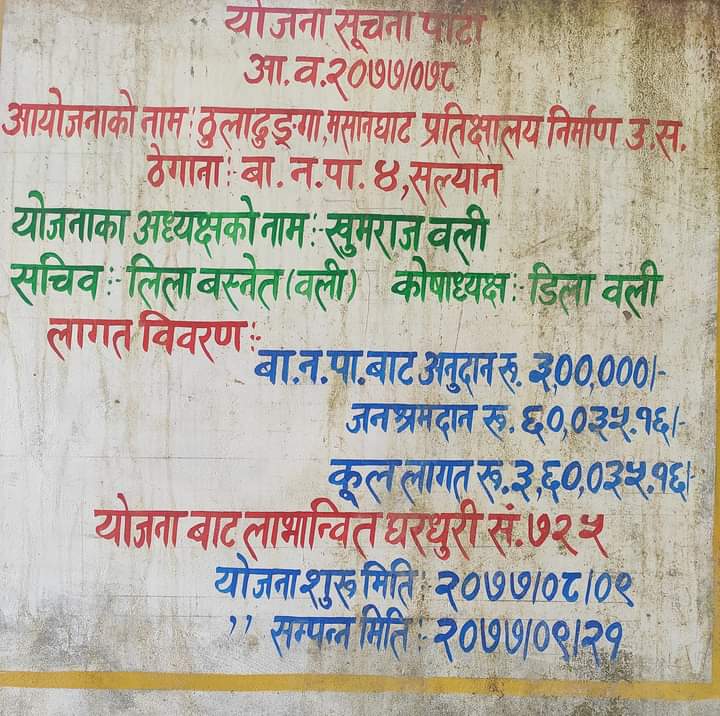 योजना सूचना पाटी
आ.व.२०७७/०७८
आयोजनाको नाम: ठुलाढुङ्गा,मसानघाट प्रतिक्षालय निर्माण उ.स.
ठेगाना:- बा. न.पा. ४,सल्यान
योजनाका अध्यक्षको नाम:- खुमराज वली
सचिव:- लिला बस्नेत(वली) कोषाध्यक्ष: डिला वली
लागत विवरण:-
बा.न.पा.बाट अनुदान रू. ३,००,०००/-
जनश्रमदान रू. ६०,०३५.१६/-
कूल लागत रू.३,६०,०३५.१६/-
योजना बाट लाभान्वित घरधुरी सं.७२५
योजना शुरू मिति: २०७७/०८/०९
,, सम्पन्न मिति: २०७७/०९/२१